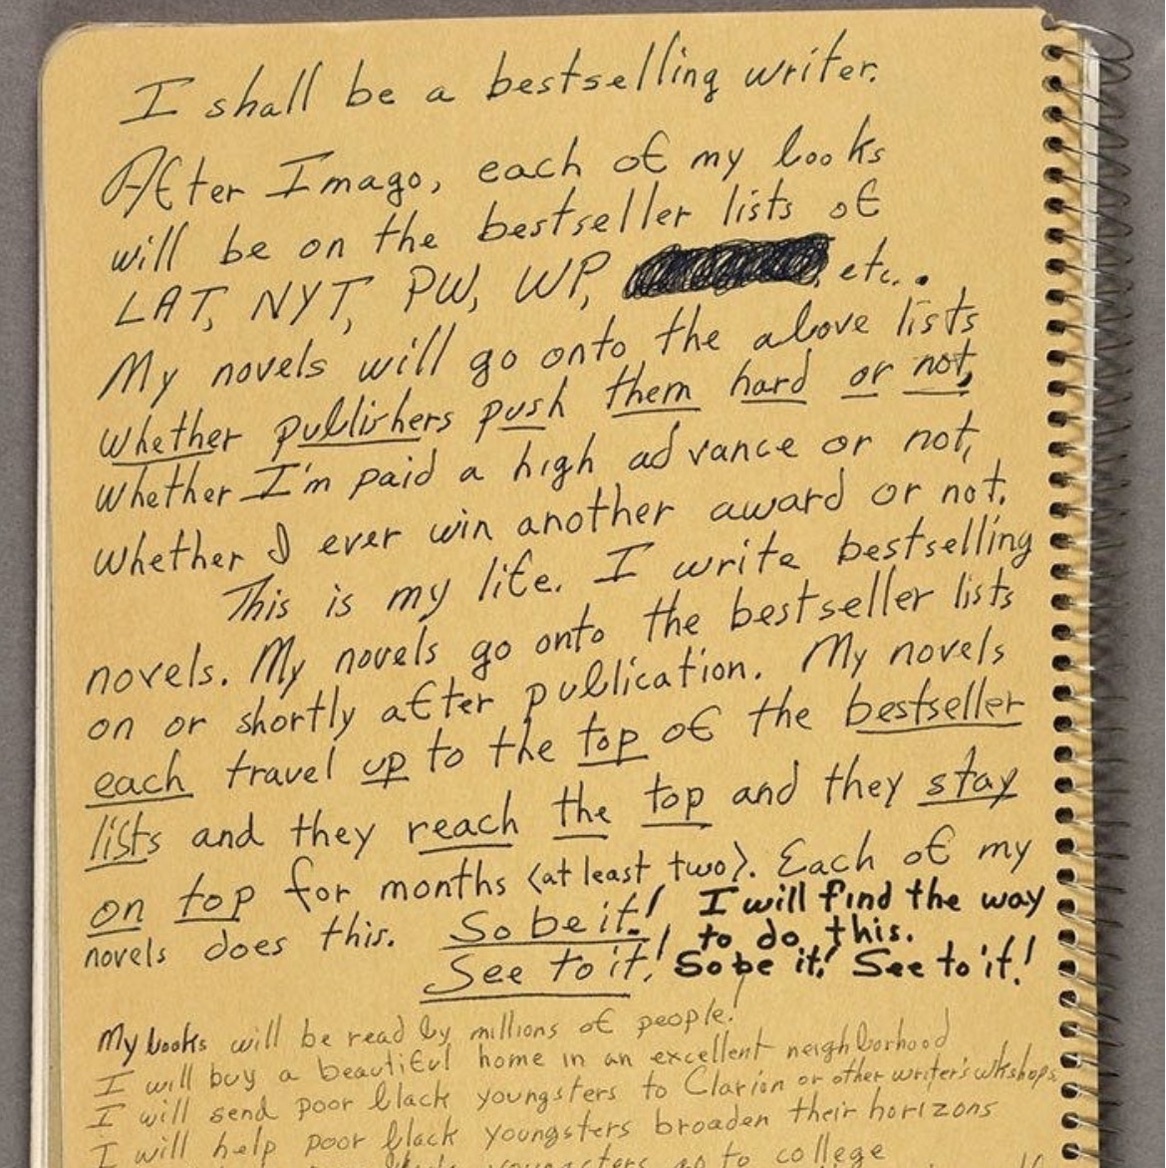 I shall be a bestselling writer.
After Imago, each of my books
will be on the bestseller lists of
LAT, NYT, PW, WP, etc..
My novels will go onto the above lists
whether publishers push them hard or not,
whether I'm paid a high advance or not,
whether I ever win another award or not.
This is my life. I write bestselling
novels. My novels go onto the bestseller lists
on or shortly after publication. My novels
each travel up to the top of the bestseller
lists and they reach the top and they stay
on top for months (at least two). Each of my
novels does this. So be it! I will find the way
See to it! to do this.
So be it! See to it!
My books will be read by millions of people!
I will buy a beautiful home in an excellent neighborhood
I will send poor black youngsters to Clarion or other writer's wkshops
I will help poor black youngsters broaden their horizons
youngsters go to college